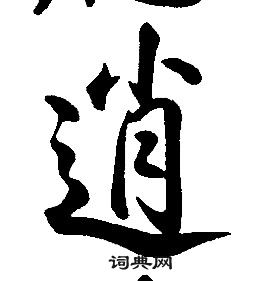 逍
词典网